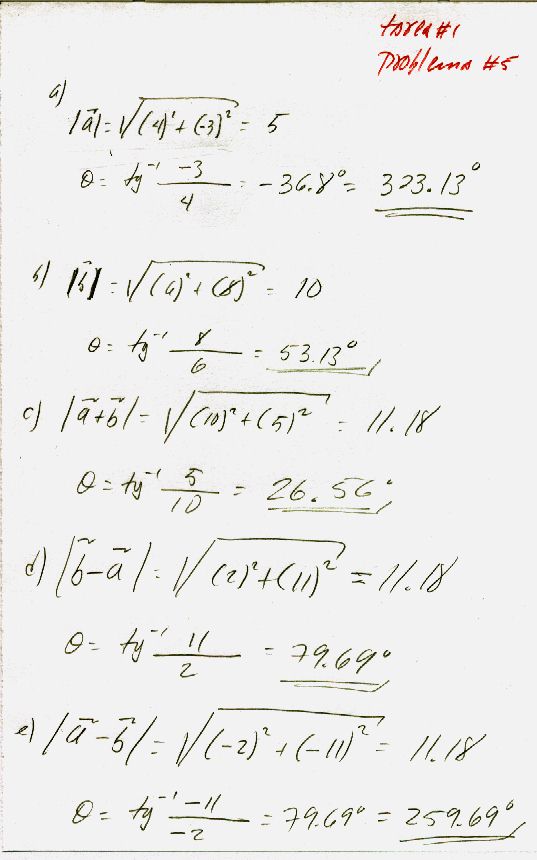 tarea #1
Problema #5
a)
|a⃗| = √((4)² + (-3)²) = 5
θ = tg⁻¹ -3/4 = -36.8° = 323.13°
b) |b⃗| = √((6)² + (8)²) = 10
θ = tg⁻¹ 8/6 = 53.13°
c) |a⃗+b⃗| = √((10)² + (5)²) = 11.18
θ = tg⁻¹ 5/10 = 26.56°
d) |b⃗-a⃗| = √((2)² + (11)²) = 11.18
θ = tg⁻¹ 11/2 = 79.69°
e) |a⃗-b⃗| = √((-2)² + (-11)²) = 11.18
θ = tg⁻¹ -11/-2 = 79.69° = 259.69°